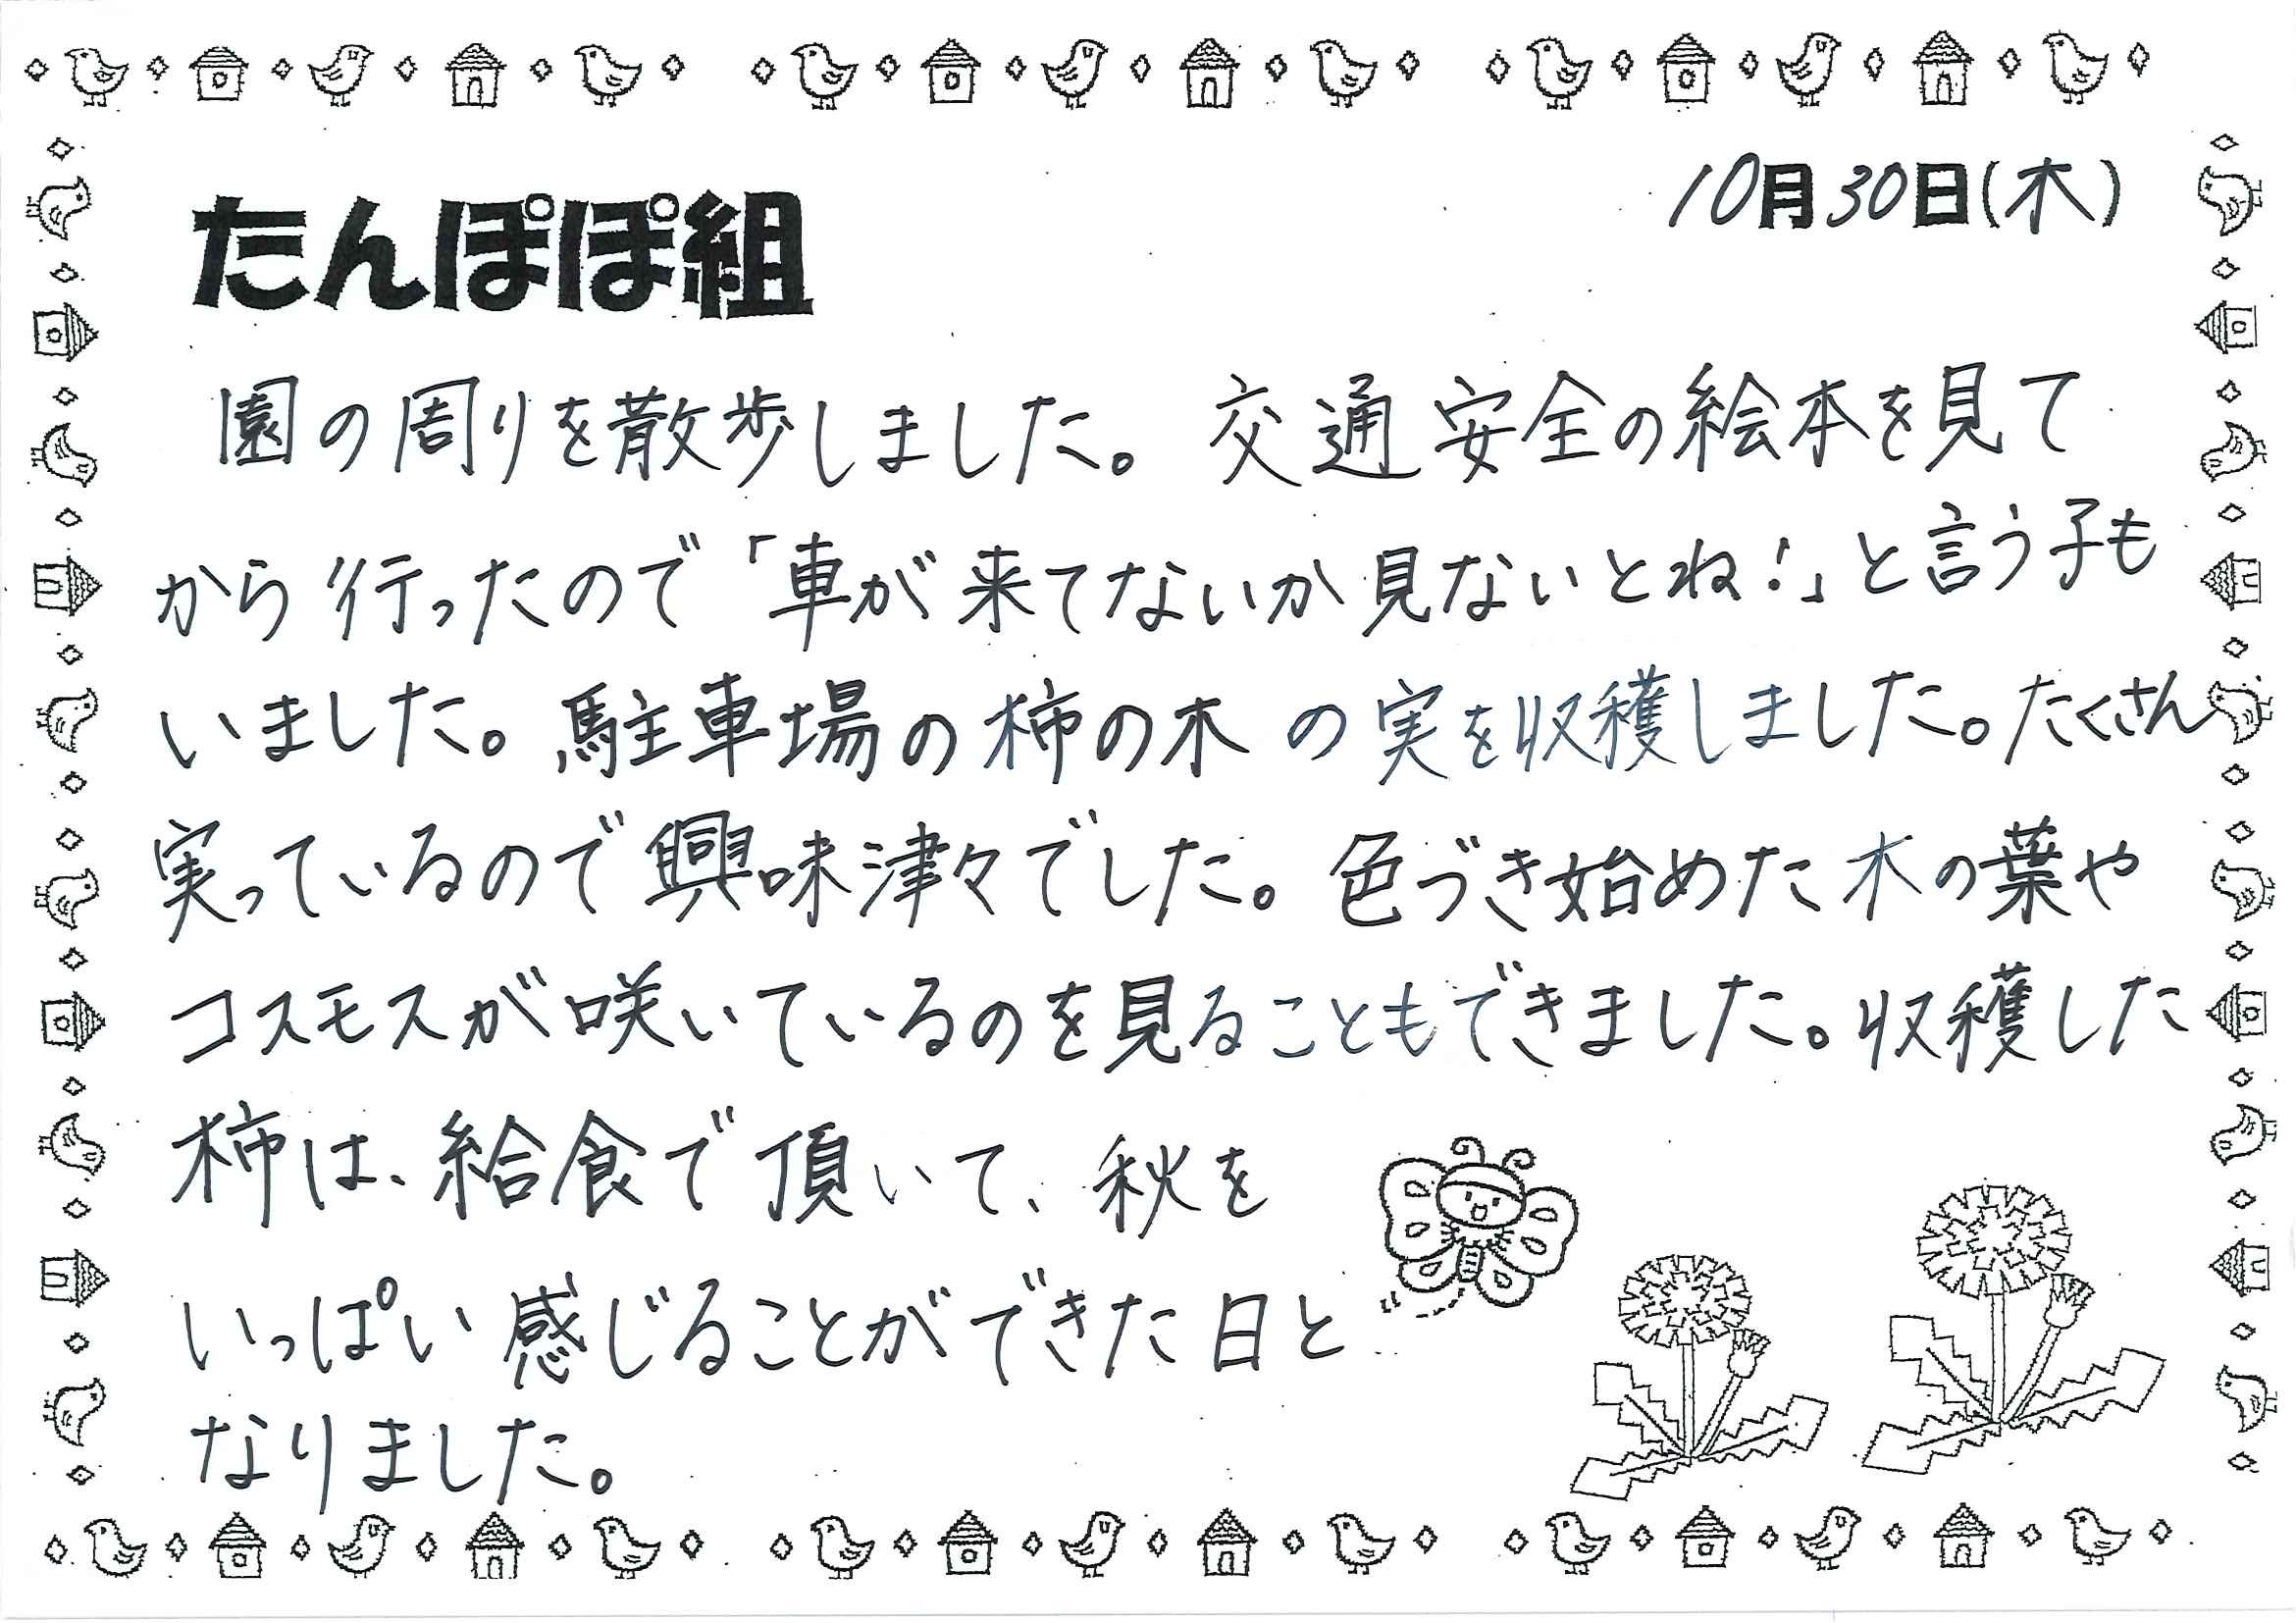 10月30日(木)
たんぽぽ組
園の周りを散歩しました。交通安全の絵本を見て
から行ったので「車が来てないか見ないとね!」と言う子も
いました。駐車場の柿の木の実を収穫しました。たくさん
実っているので興味津々でした。色づき始めた木の葉や
コスモスが咲いているのを見ることもできました。収穫した
柿は、給食で頂いて、秋を
いっぱい感じることができた日と
なりました。